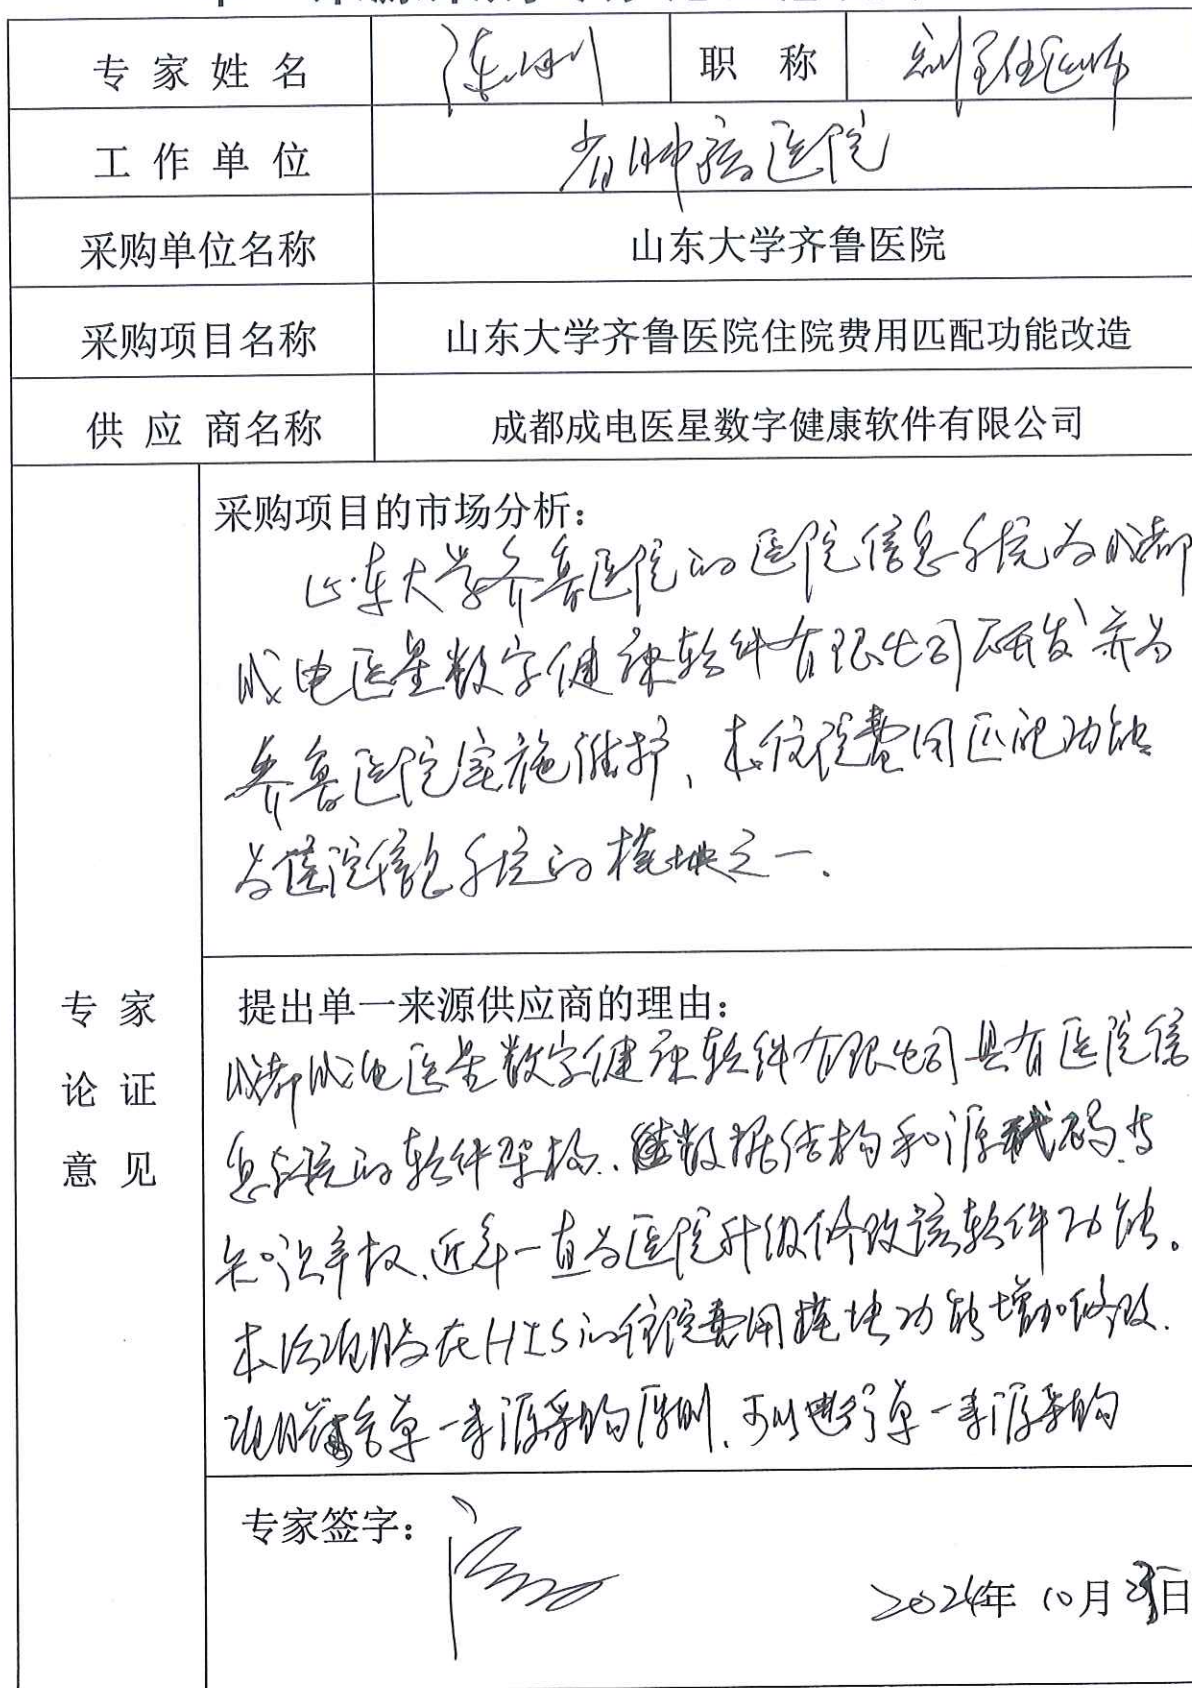 专家姓名 职称 副主任医师
工作单位 省肿瘤医院
采购单位名称 山东大学齐鲁医院
采购项目名称 山东大学齐鲁医院住院费用匹配功能改造
供应商名称 成都成电医星数字健康软件有限公司
专家论证意见
采购项目的市场分析:
山东大学齐鲁医院的医院信息系统为成都
成电医星数字健康软件有限公司研发并为
齐鲁医院实施维护,本住院费用匹配功能
为医院信息系统的模块之一.
提出单一来源供应商的理由:
成都成电医星数字健康软件有限公司具有医院信
息系统的软件架构、数据结构和源代码与
知识产权,近年一直为医院升级修改该软件功能。
本次项目在HIS的住院费用模块功能增加修改.
项目符合单一来源采购原则,可以进行单一来源采购
专家签字:
2024年10月 日